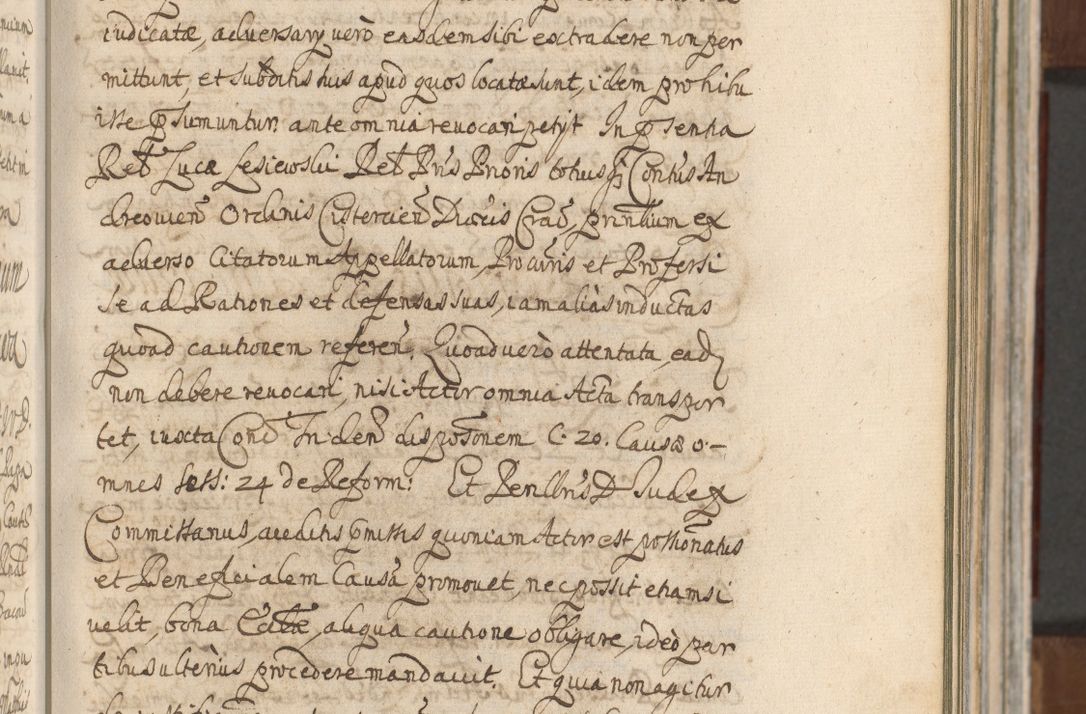 iudicatæ, adversarÿ verò easdem sibi extrahere non per
mittunt, et subditis suis apud quos locatæ sunt, idem prohibu
isse psumuntur. ante omnia revocari petÿt In psentia
Rel Lucæ Lesiewski Rel Pris Prioris totiusq Contus An
dreovien Ordinis Cistercien Diæcis Crac, prinlium ex
adverso Citatorum Appellatorum, Procuris et Professi
se ad Rationes et defensas suas, iam aliàs inductas
quoad cautionem referen. Quoad verò attentata, ead
non debere revocari, nisi Actor omnia Acta transpor
tet, iuxta Conc Triden disposonem C. 20. Causæ o-
mnes Sess: 24 de Reform: Et Penllris D Iudex
Commissarius, auditis pmissis quoniam Actor est possionatus
et Beneficialem Causã promovet, nec possit etiamsi
velit, bona Ecclæ, aliqua cautione obligare, ideò par
tibus ulterius procedere mandavit. Et quia non agitur